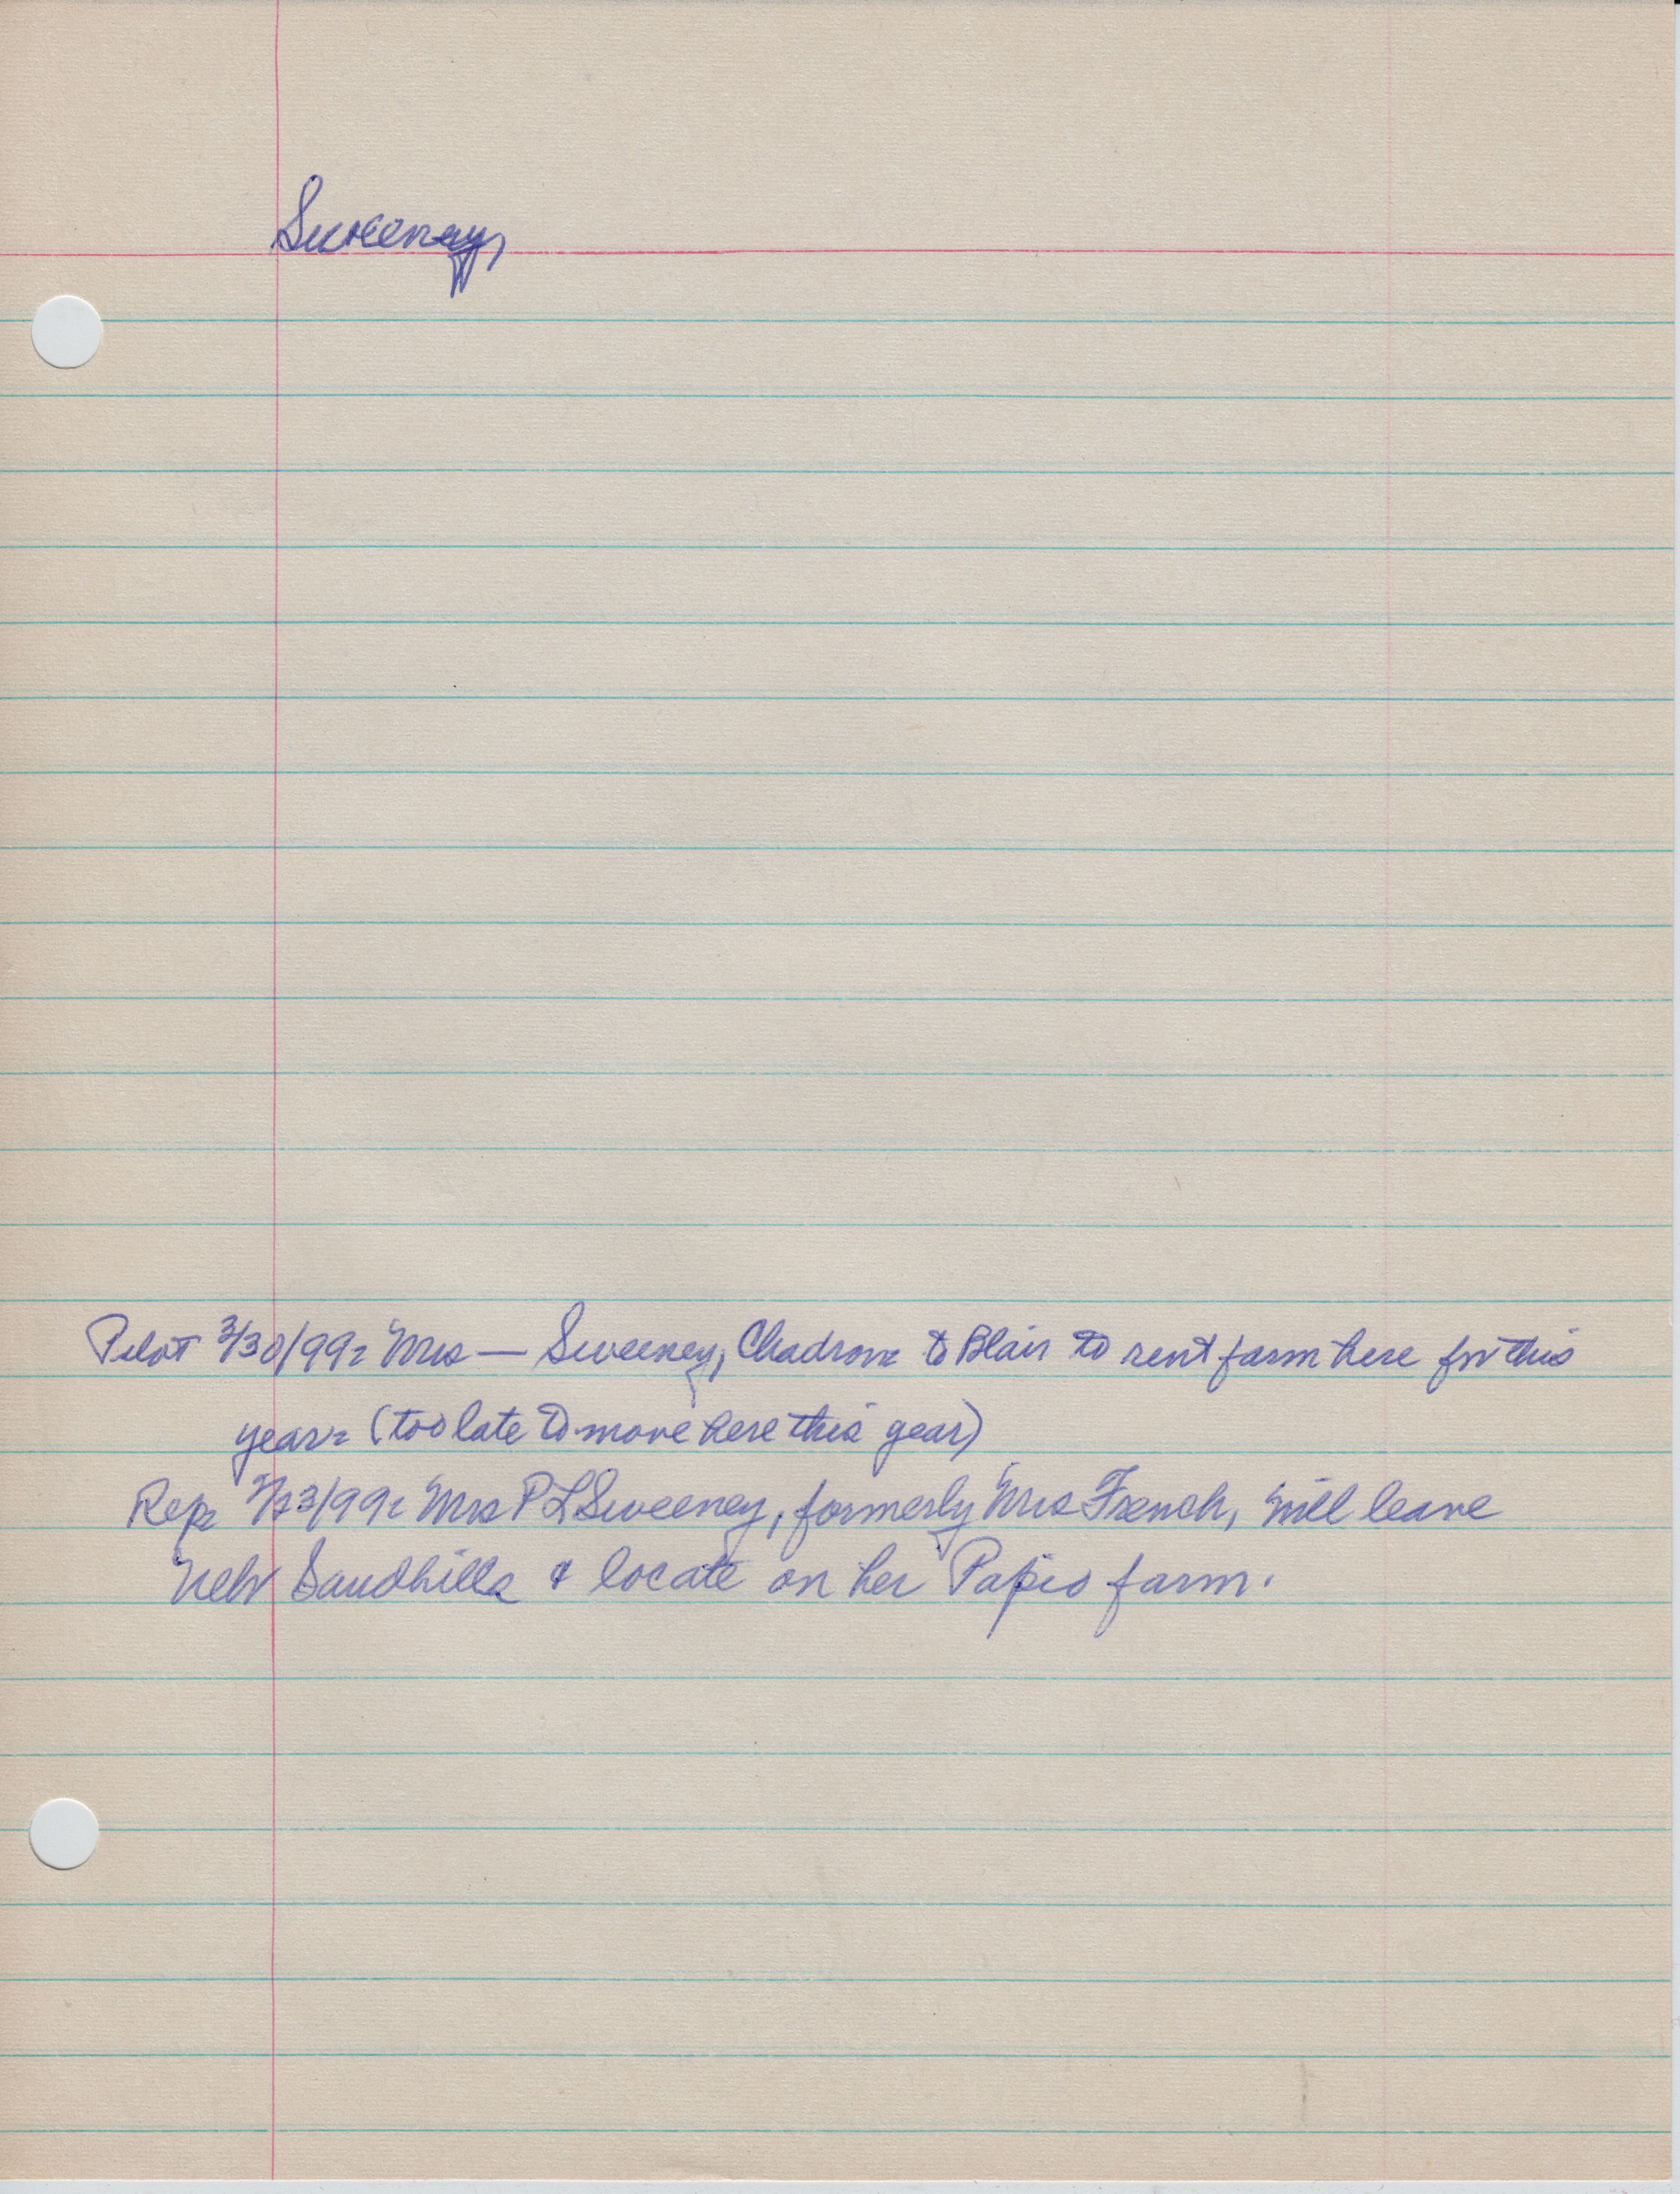 Sweeney,
Pilot 3/30/99: Mrs — Sweeney, Chadron to Blair to rent farm here for this
year: (too late to move here this year)
Rep: 2/23/99: Mrs P L Sweeney, formerly Mrs French, will leave
Nebr Sandhills & locate on her Papio farm.